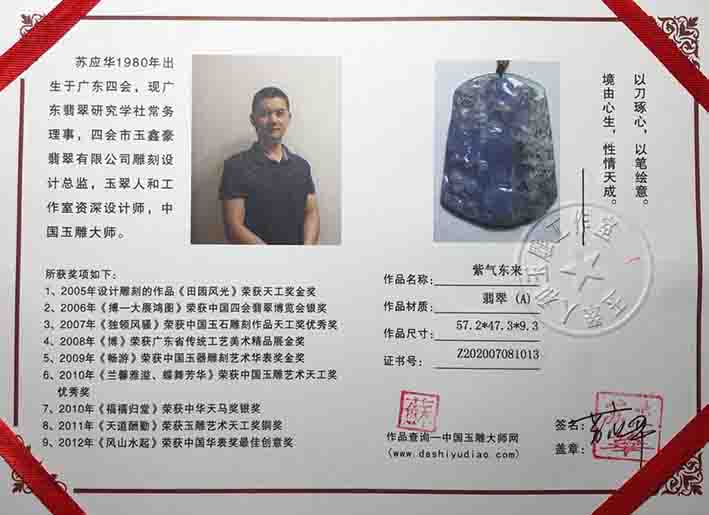 苏应华1980年出
生于广东四会，现广
东翡翠研究学社常务
理事，四会市玉鑫豪
翡翠有限公司雕刻设
计总监，玉翠人和工
作室资深设计师，中
国玉雕大师。
以刀琢心，以笔绘意。
境由心生，性情天成。
所获奖项如下：
1、2005年设计雕刻的作品《田园风光》荣获天工奖金奖
2、2006年《搏一大展鸿图》荣获中国四会翡翠博览会银奖
3、2007年《独领风骚》荣获中国玉石雕刻作品天工奖优秀奖
4、2008年《博》荣获广东省传统工艺美术精品展金奖
5、2009年《畅游》荣获中国玉器雕刻艺术华表奖金奖
6、2010年《兰馨雅溢、蝶舞芳华》荣获中国玉雕艺术天工奖
优秀奖
7、2010年《禧禧归堂》荣获中华天马奖银奖
8、2011年《天道酬勤》荣获玉雕艺术天工奖铜奖
9、2012年《风山水起》荣获中国华表奖最佳创意奖
作品名称：紫气东来
作品材质：翡翠（A）
作品尺寸：57.2*47.3*9.3
证书号：Z202007081013
作品查询—中国玉雕大师网
(www.dashiyudiao.com)
签名：苏应华
盖章：